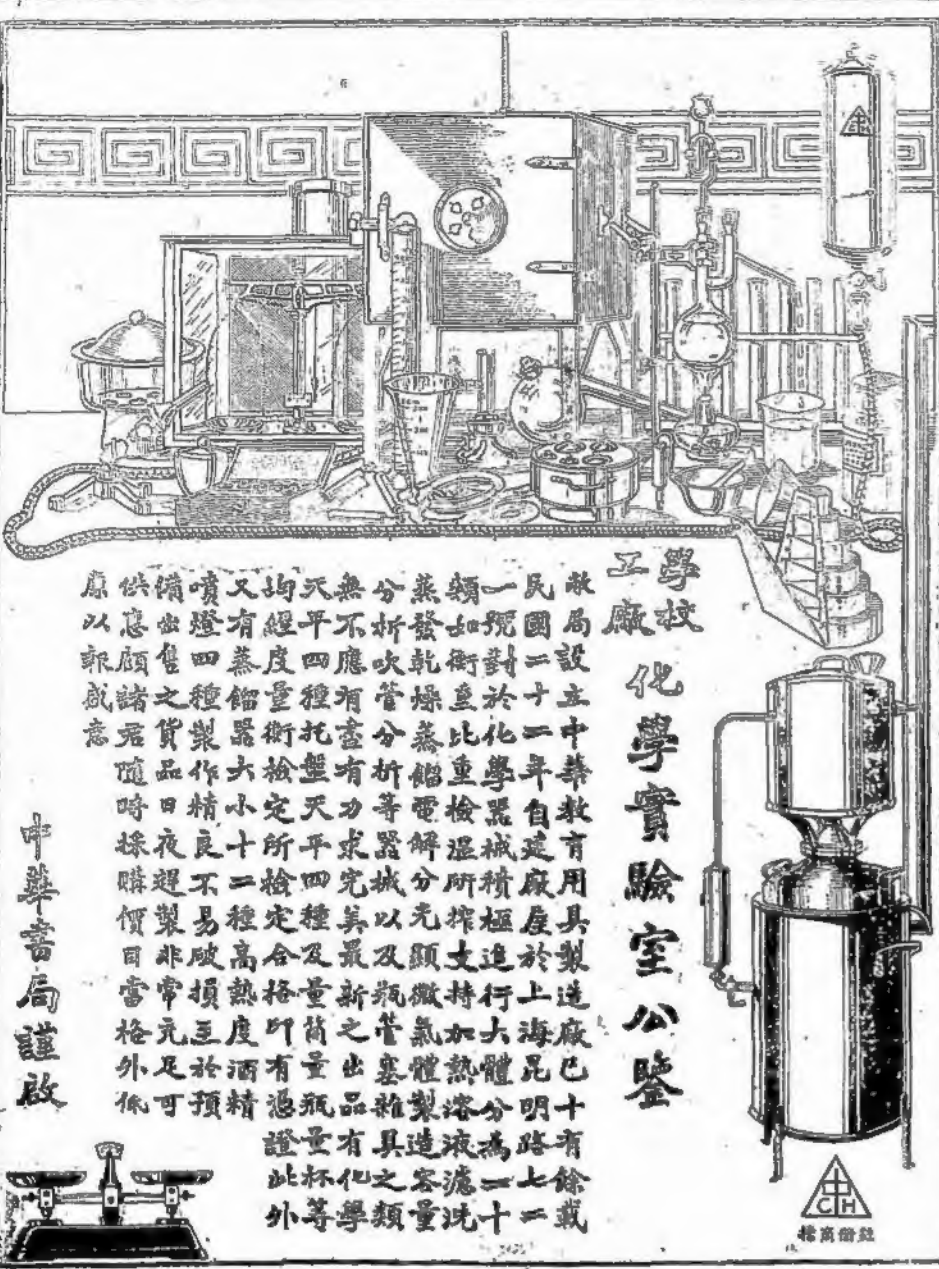 學校
工廠
化學實驗室公鑒
敝局設立中華教育用具製造廠已十有餘載
民國二十二年自建廠屋於上海昆明路七二
一號對於化學器械積極進行大體分為二十
類如衡量比重檢溫研搾支持加熱溶液濾洗
蒸發乾燥蒸餾電解分光顯微氣體製造容量
分析吹管分析等器械以及瓶管塞雜具之類
無不應有盡有力求完美最新之出品有化學
天平四種托盤天平四種及量筒量瓶量杯等
均經度量衡檢定所檢定合格印有憑證此外
又有蒸餾器大小十二種高熱度酒精
噴燈四種製作精良不易破損至於預
備出售之貨品日夜趕製非常充足可
供惠顧諸君隨時採購價目當格外低
廉以報盛意
中華書局謹啟
中
CH
註冊商標